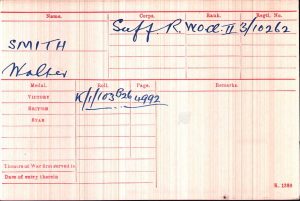 Name. Corps. Rank. Regtl. No.
SMITH Suff. R. WOcl. II 3/10262
Walter
Medal. Roll. Page. Remarks.
VICTORY K/1/103B26 4992
BRITISH
STAR
Theatre of War first served in
Date of entry therein
K. 1380